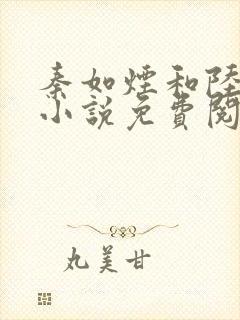 秦如煙和陸
小說免費閱
丸美甘